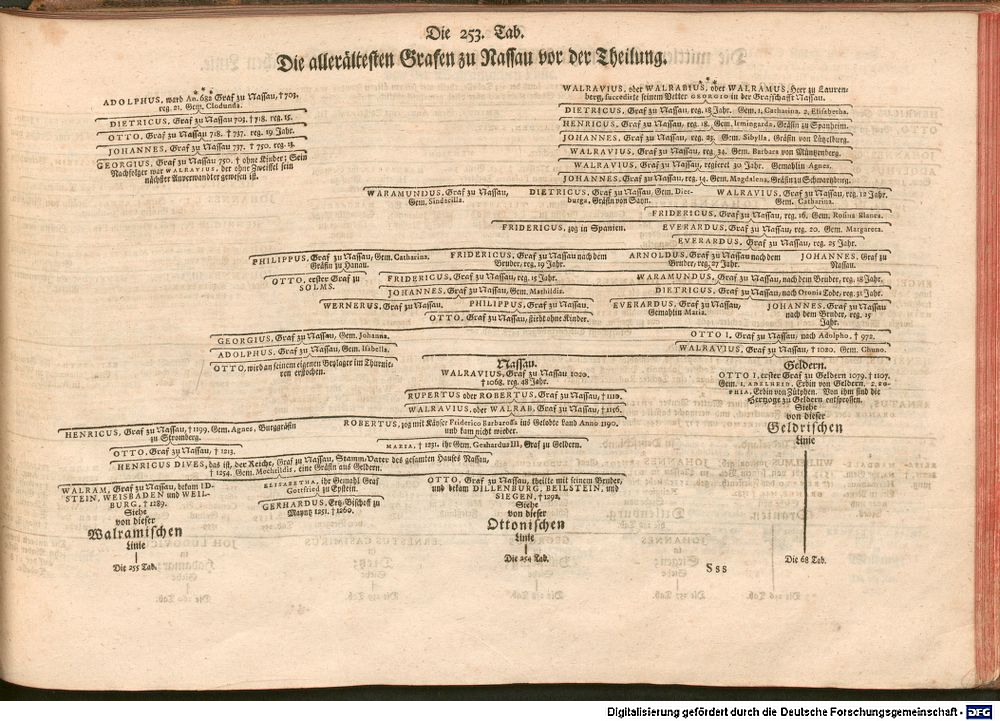 Die 253. Tab.
Die allerältesten Grafen zu Nassau vor der Theilung.
ADOLPHUS, ward An. 682 Graf zu Nassau, † 703,
reg. 21. Gem. Clodunda.
DIETRICUS, Graf zu Nassau 703. † 718. reg. 15.
OTTO, Graf zu Nassau 718. † 737. reg. 19 Jahr.
JOHANNES, Graf zu Nassau 737. † 750. reg. 13.
GEORGIUS, Graf zu Nassau 750. † ohne Kinder; Sein
Nachfolger war WALRAVIUS, der ohne Zweiffel sein
nächster Anverwandter gewesen ist.
WALRAVIUS, oder WALRABIUS, ober WALRAMUS, Herr zu Lauren-
berg, succedirte seinem Vetter GEORGIO in der Grafschafft Nassau.
DIETRICUS, Graf zu Nassau, reg. 18 Jahr. Gem. 1, Catharina, 2, Elisabetha.
HENRICUS, Graf zu Nassau, reg. 18. Gem. Irmingarda, Gräfin zu Spanheim.
JOHANNES, Graf zu Nassau, reg. 23. Gem. Sibylla, Gräfin von Lützelburg.
WALRAVIUS, Graf zu Nassau, reg. 34. Gem. Barbara von Müntzenberg.
WALRAVIUS, Graf zu Nassau, regieret 30 Jahr. Gemahlin Agnes.
JOHANNES, Graf zu Nassau, reg. 14. Gem. Magdalena, Gräfin zu Schwartzburg.
WARAMUNDUS, Graf zu Nassau,
Gem. Sindacilla.
DIETRICUS, Graf zu Nassau, Gem. Diet-
burga, Gräfin von Sayn.
WALRAVIUS, Graf zu Nassau, reg. 12 Jahr.
Gem. Catharina.
FRIDERICUS, Graf zu Nassau, reg. 16, Gem. Rosina Blanca.
FRIDERICUS, zog in Spanien.
EVERARDUS, Graf zu Nassau, reg. 20. Gem. Margareta.
EVERARDUS, Graf zu Nassau, reg. 25 Jahr.
PHILIPPUS, Graf zu Nassau, Gem. Catharina,
Gräfin zu Hanau.
FRIDERICUS, Graf zu Nassau nach dem
Bruder, reg. 19 Jahr.
ARNOLDUS, Graf zu Nassau nach dem
Bruder, reg. 27 Jahr.
JOHANNES, Graf zu
Nassau.
OTTO, erster Graf zu
SOLMS.
FRIDERICUS, Graf zu Nassau, reg. 15 Jahr.
WARAMUNDUS, Graf zu Nassau, nach dem Bruder, reg. 18 Jahr.
JOHANNES, Graf zu Nassau, Gem. Mathildis.
DIETRICUS, Graf zu Nassau, nach Otonis Tode, reg. 31 Jahr.
WERNERUS, Graf zu Nassau.
PHILIPPUS, Graf zu Nassau.
EVERARDUS, Graf zu Nassau,
Gemahlin Maria.
JOHANNES, Graf zu Nassau
nach dem Bruder, reg. 15
Jahr.
OTTO, Graf zu Nassau, stirbt ohne Kinder.
GEORGIUS, Graf zu Nassau, Gem. Johanna.
OTTO I. Graf zu Nassau, nach Adolpho, † 972.
ADOLPHUS, Graf zu Nassau, Gem. Isabella.
WALRAVIUS, Graf zu Nassau, † 1020. Gem. Chuno.
OTTO, wird an seinem eigenen Beylager im Thurnie-
ren erstochen.
Nassau.
WALRAVIUS, Graf zu Nassau 1020.
† 1068. reg. 48 Jahr.
Geldern.
OTTO I, erster Graf zu Geldern 1079. † 1107.
Gem. 1, ADELHEID, Erbin von Geldern. 2, SO-
PHIA, Erbin von Zütphen. Von ihm sind die
Hertzoge zu Geldern entsprossen.
Siehe
von dieser
Geldrischen
Linie
RUPERTUS oder ROBERTUS, Graf zu Nassau, † 1110.
WALRAVIUS, oder WALRAB, Graf zu Nassau, † 1116.
HENRICUS, Graf zu Nassau, † 1199, Gem. Agnes, Burggräfin
zu Stromberg.
ROBERTUS, zog mit Käyser Friderico Barbarossa ins Gelobte Land Anno 1190.
und kam nicht wieder.
MARIA, † 1231. ihr Gem. Gerhardus III, Graf zu Geldern.
OTTO, Graf zu Nassau, † 1213.
HENRICUS DIVES, das ist, der Reiche, Graf zu Nassau, Stamm-Vater des gesamten Hauses Nassau,
† 1254. Gem. Mechtildis, eine Gräfin aus Geldern.
WALRAM, Graf zu Nassau, bekam ID-
STEIN, WEISBADEN und WEIL-
BURG, † 1289.
Siehe
von dieser
Walramischen
Linie
Die 255 Tab.
ELISABETHA, ihr Gemahl Graf
Gottfried zu Epstein.
GERHARDUS, Ertz-Bischoff zu
Mayntz 1251. † 1260.
OTTO, Graf zu Nassau, theilte mit seinem Bruder,
und bekam DILLENBURG, BEILSTEIN, und
SIEGEN, † 1292,
Siehe
von dieser
Ottonischen
Linie
Die 254 Tab.
Die 68 Tab.
Sss
Digitalisierung gefördert durch die Deutsche Forschungsgemeinschaft - DFG